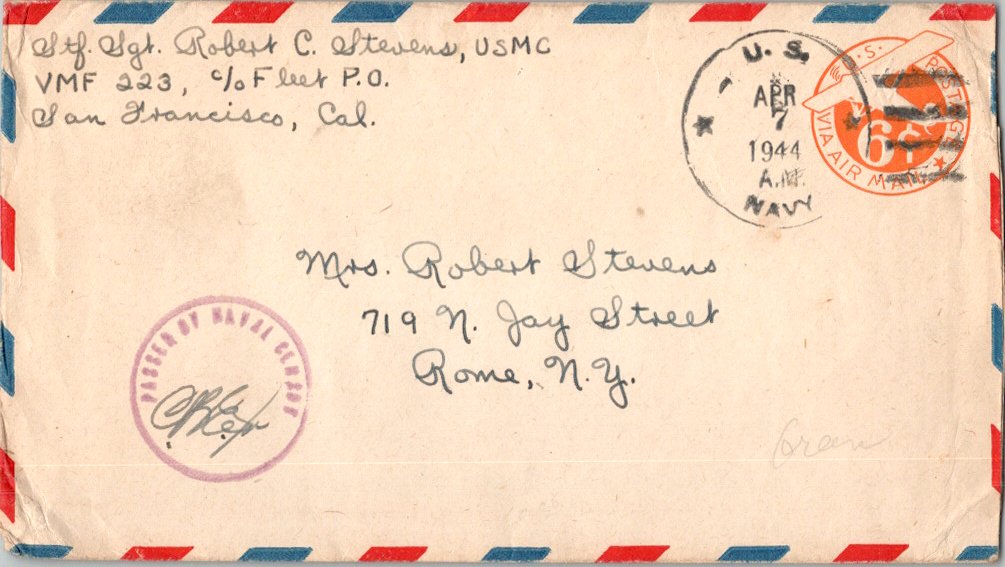 Stf. Sgt. Robert C. Stevens, USMC
VMF 223, c/o Fleet P.O.
San Francisco, Cal.
U. S.
APR
7
1944
A.M.
NAVY
U.S. POSTAGE
6¢
VIA AIR MAIL
Mrs. Robert Stevens
719 N. Jay Street
Rome, N.Y.
PASSED BY NAVAL CENSOR
Green